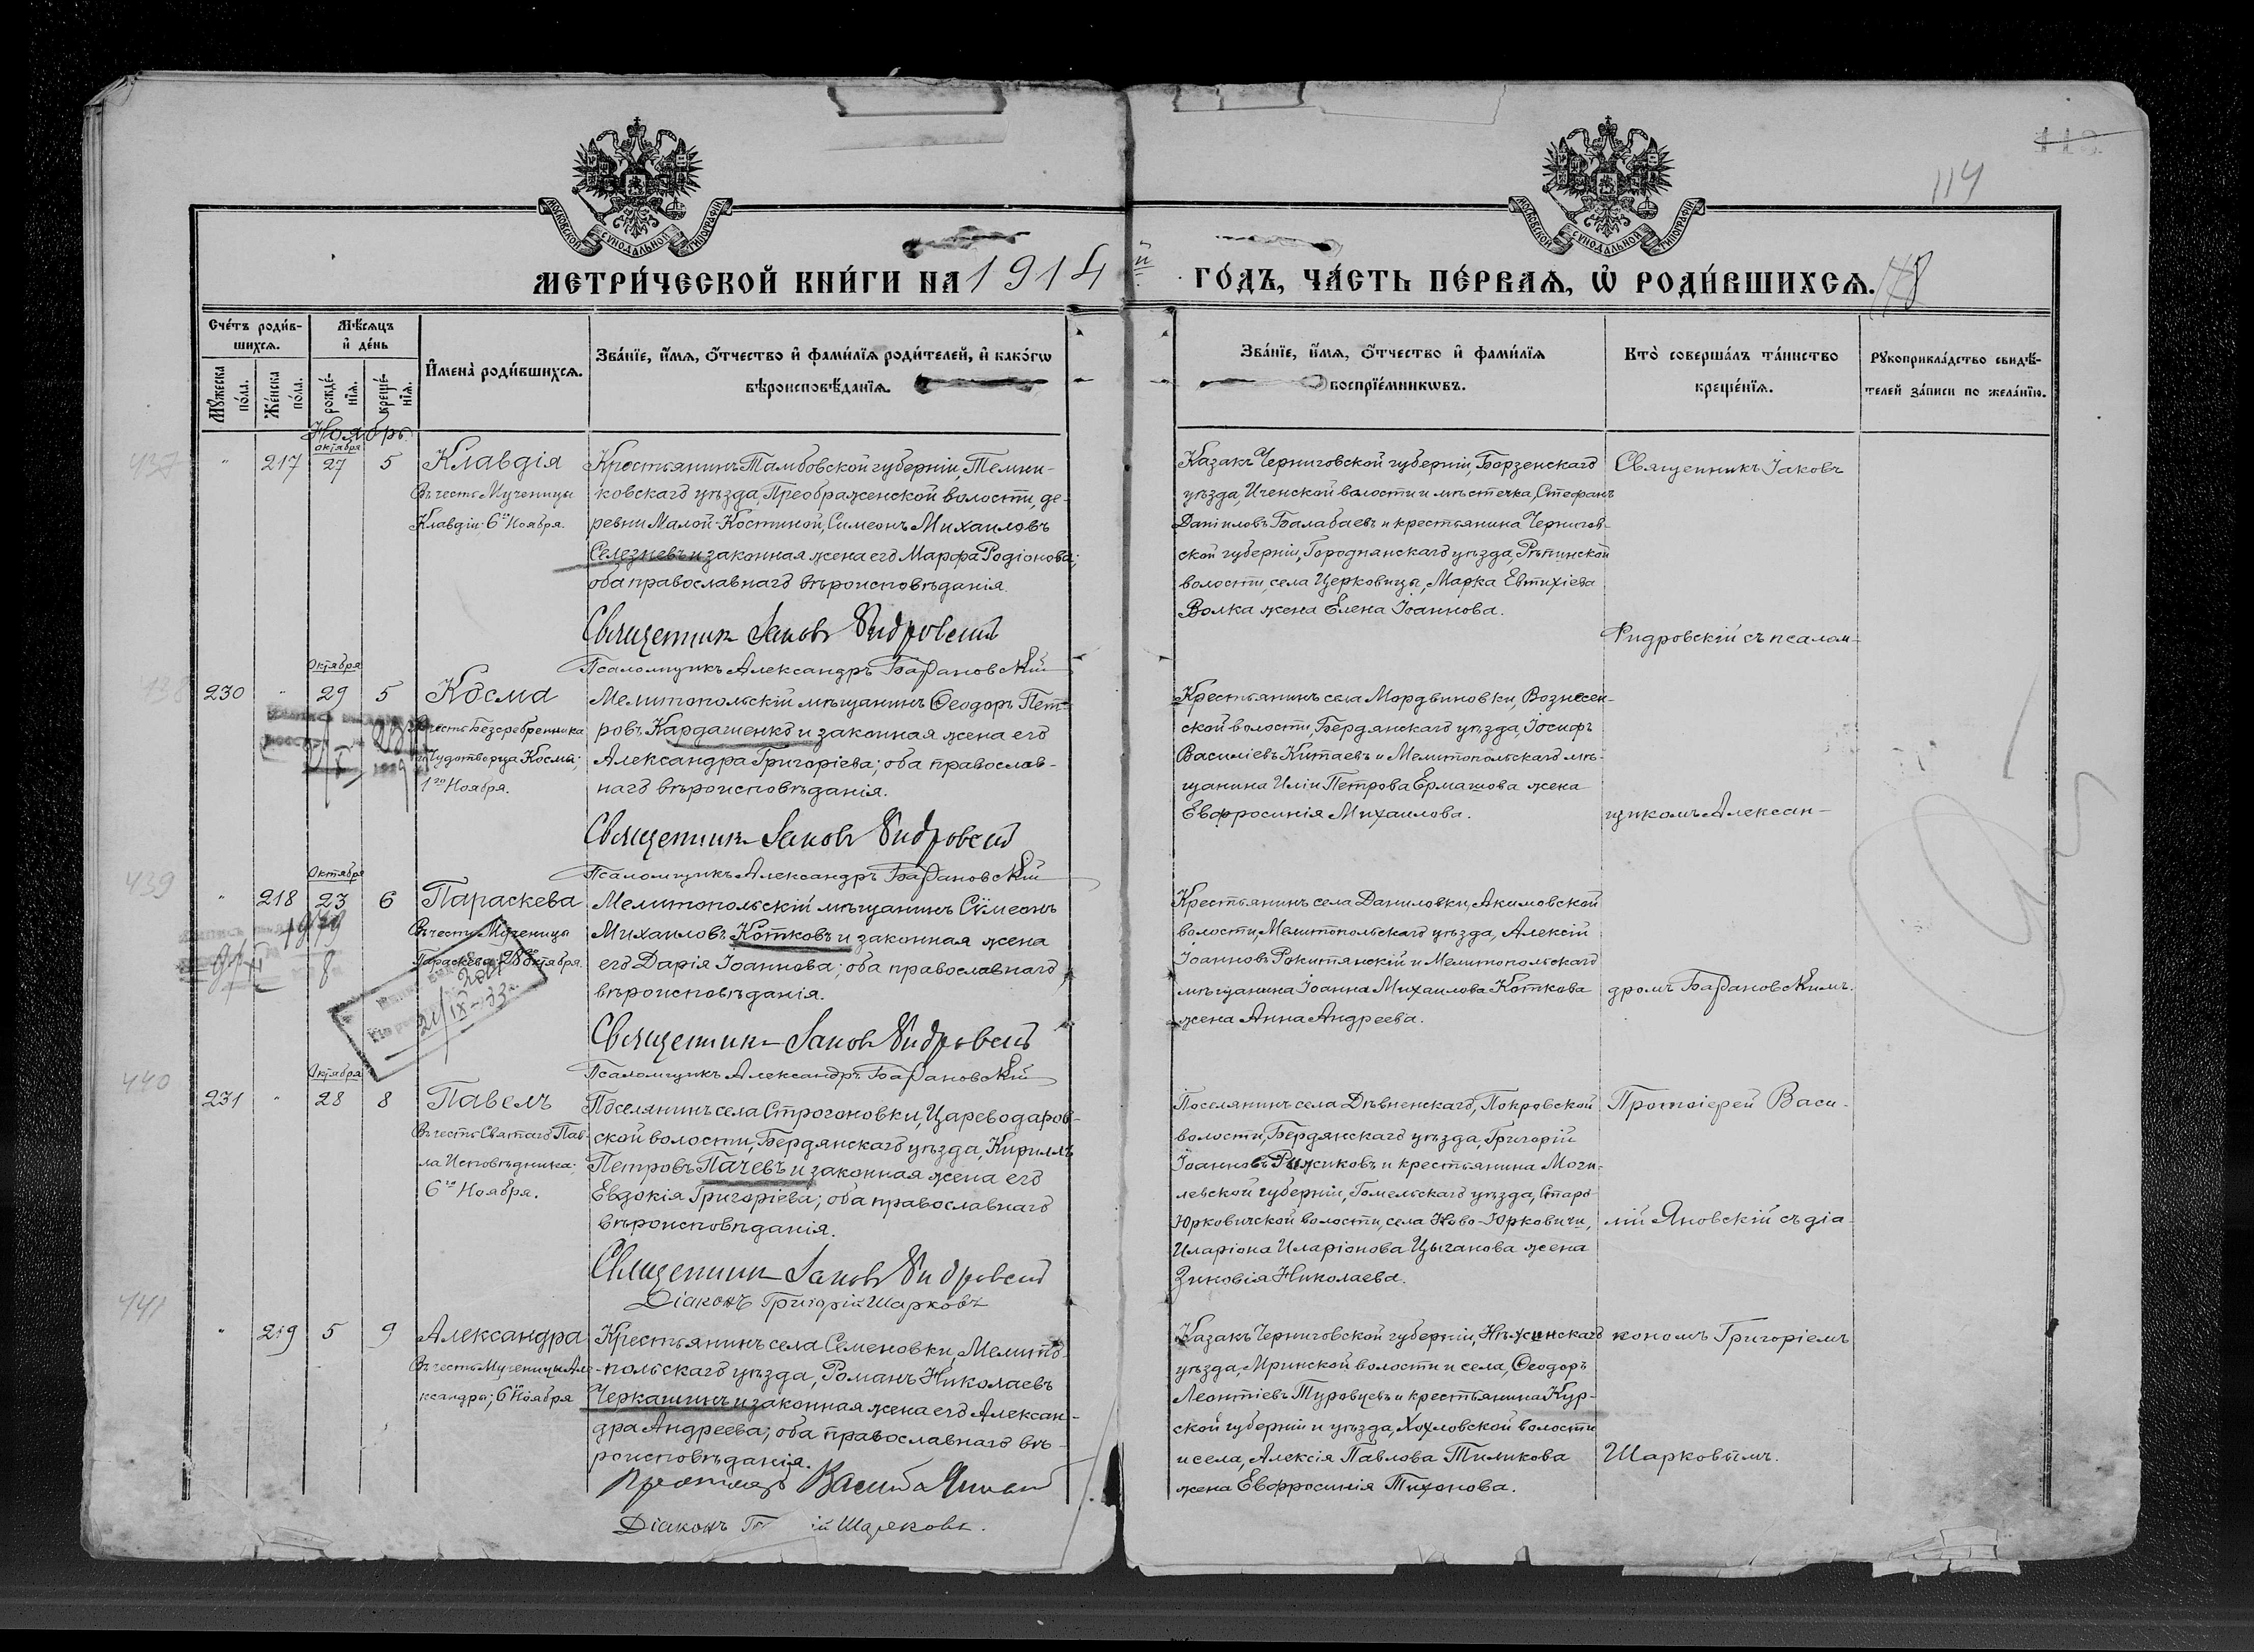 МОСКОВСКОЙ СѴНОДАЛЬНОЙ ТИПОГРАФІИ
МОСКОВСКОЙ СѴНОДАЛЬНОЙ ТИПОГРАФІИ
114
МЕТРИ́ЧЕСКОЙ КНИ́ГИ НА 1914 й ГО́ДЪ, ЧА́СТЬ ПЕ́РВАѦ, Ѡ҆ РОДИ́ВШИХСѦ.
Сче́тъ роди́в-
шихсѧ.
Мѣ́сѧцъ
и҆ де́нь
Мꙋ́жеска
по́ла.
Же́нска
по́ла.
рожде́-
нїѧ.
креще́-
нїѧ.
И҆мена̀ роди́вшихсѧ.
Зва́нїе, и҆́мѧ, ѻ҆́тчество и҆ фами́лїѧ роди́телей, и҆ како́гѡ
вѣроисповѣ́данїѧ.
Зва́нїе, и҆́мѧ, ѻ҆́тчество и҆ фами́лїѧ
воспрїе́мникѡвъ.
Кто̀ соверша́лъ та́инство
креще́нїѧ.
Рꙋкоприкла́дство свидѣ́-
телей за́писи по жела́нїю.
Ноябрь.
Октября
437
" 217 27 5 Клавдія
Въ честь Мученицы
Клавдіи 6го Ноября.
Крестьянинъ Тамбовской губерніи, Темни-
ковскаго уѣзда, Преображенской волости, де-
ревни Малой-Костиной, Симеонъ Михаиловъ
Селезневъ и законная жена его Марфа Родіонова;
оба православнаго вѣроисповѣданія.
Священник Іаковъ
Псаломщикъ Александръ Барановскій
Казакъ Черниговской губерніи, Борзенскаго
уѣзда, Иченской волости и мѣстечка, Стефанъ
Даніиловъ Балабаевъ и крестьянина Чернигов-
ской губерніи, Городнянскаго уѣзда, Рѣпинской
волости, села Церковищи, Марка Евтихіева
Волка жена Елена Іоаннова.
Священникъ Іаковъ
съ псалом-
438
Октября
230 " 29 5 Косма
честь Безсребренника
и Чудотворца Космы;
1го Ноября.
Мелитопольскій мѣщанинъ Ѳеодоръ Пет-
ровъ Кардашенко и законная жена его
Александра Григоріева; оба православ-
наго вѣроисповѣданія.
Священник Іаковъ
Псаломщикъ Александръ Барановскій
Крестьянинъ села Мордвиновки, Вознесен-
ской волости, Бердянскаго уѣзда, Іосифъ
Василіевъ Китаевъ и Мелитопольскаго мѣ-
щанина Иліи Петрова Ермашова жена
Евфросинія Михаилова.
щикомъ Алексан-
439
Октября
" 218 23 6 Параскева
Въ честь Мученицы
Параскевы, 28го Октября.
Мелитопольскій мѣщанинъ Сѵмеонъ
Михаиловъ Котковъ и законная жена
его Дарія Іоаннова; оба православнаго
вѣроисповѣданія.
Священник Іаковъ
Псаломщикъ Александръ Барановскій
Крестьянинъ села Даниловки, Акимовской
волости, Мелитопольскаго уѣзда, Алексій
Іоанновъ Рокитянскій и Мелитопольскаго
мѣщанина Іоанна Михаилова Коткова
жена Анна Андреева.
дромъ Барановскимъ.
440
Октября
231 " 28 8 Павелъ
Въ честь Святаго Пав-
ла Исповѣдника;
6го Ноября.
Поселянинъ села Строгоновки, Цареводаров-
ской волости, Бердянскаго уѣзда, Кириллъ
Петровъ Пачевъ и законная жена его
Евдокія Григоріева; оба православнаго
вѣроисповѣданія.
Священник Іаковъ
Діаконъ Григорій Шарковъ
Поселянинъ села Дѣвненскаго, Покровской
волости, Бердянскаго уѣзда, Григорій
Іоанновъ Рыжиковъ и крестьянина Моги-
левской губерніи, Гомельскаго уѣзда, Старо-
Юрковичской волости, села Ново-Юрковичи,
Иларіона Иларіонова Цыганова жена
Зиновія Николаева.
Протоіерей Васи-
лій Яновскій съ діа-
441
" 219 5 9 Александра
Въ честь Мученицы Але-
ксандры; 6го Ноября
Крестьянинъ села Семеновки, Мелито-
польскаго уѣзда, Романъ Николаевъ
Черкашинъ и законная жена его Алексан-
дра Андреева; оба православнаго вѣ-
роисповѣданія.
Діаконъ Шарковъ.
Казакъ Черниговской губерніи, Нѣжинскаго
уѣзда, Мринской волости и села, Ѳеодоръ
Леонтіевъ Туровцевъ и крестьянина Кур-
ской губерніи и уѣзда, Хохловской волости
и села, Алексія Павлова Тиликова
жена Евфросинія Тихонова.
кономъ Григоріемъ
Шарковымъ.